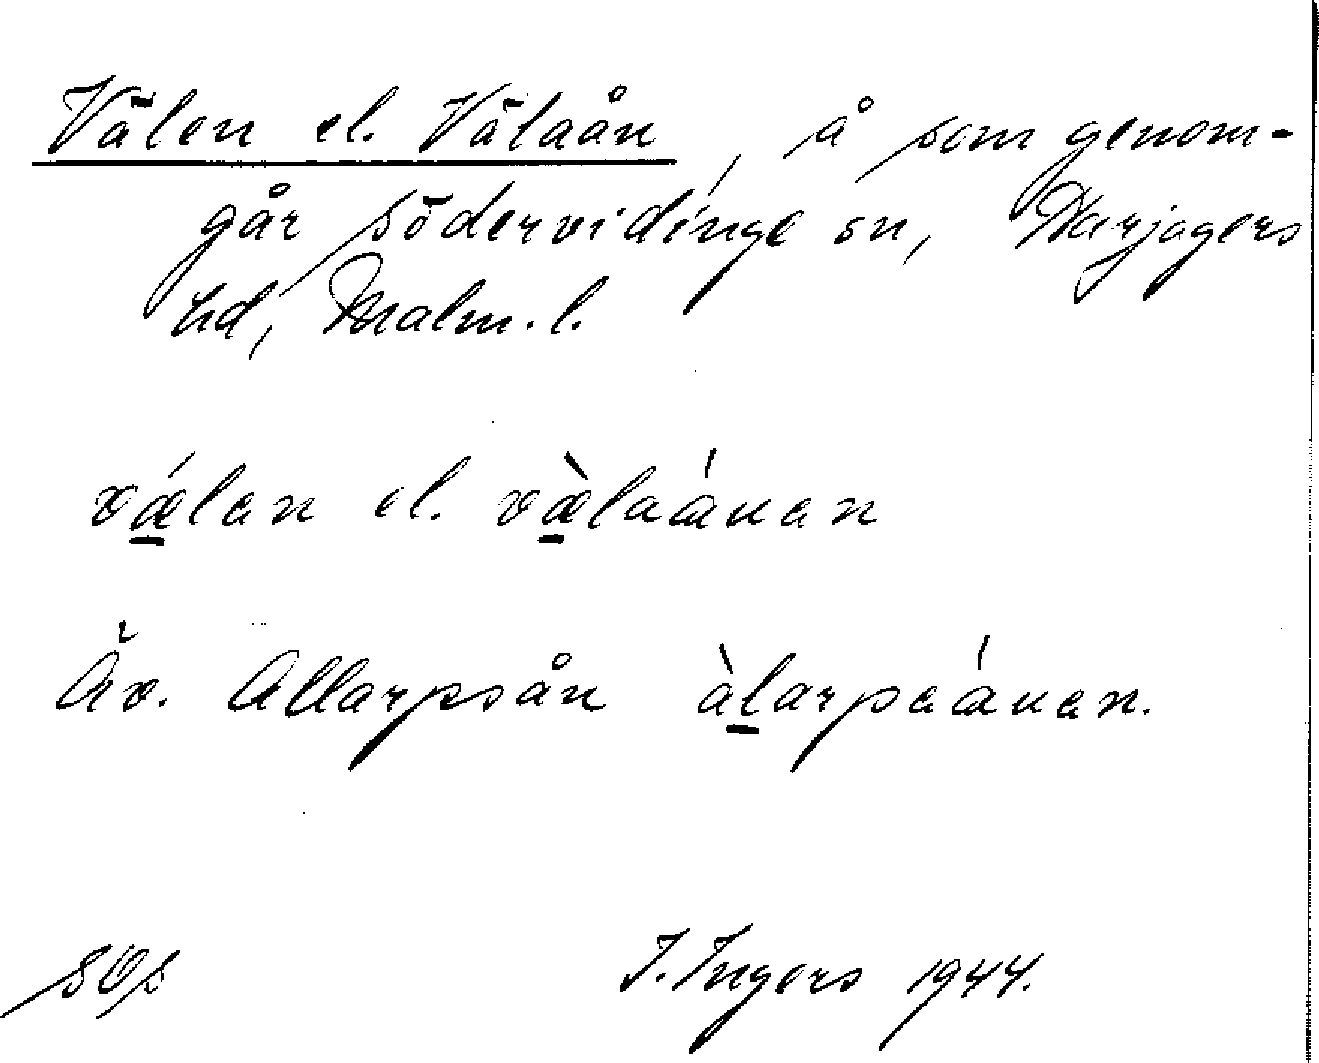 Välen el. Välaån, å som genom-
går Södervidinge sn, Harjagers
hd, Malm. l.
vǽlen el. væ̀laáuen
Äv. Allarpsån àlarpsáuen.
I. Ingers 1944.